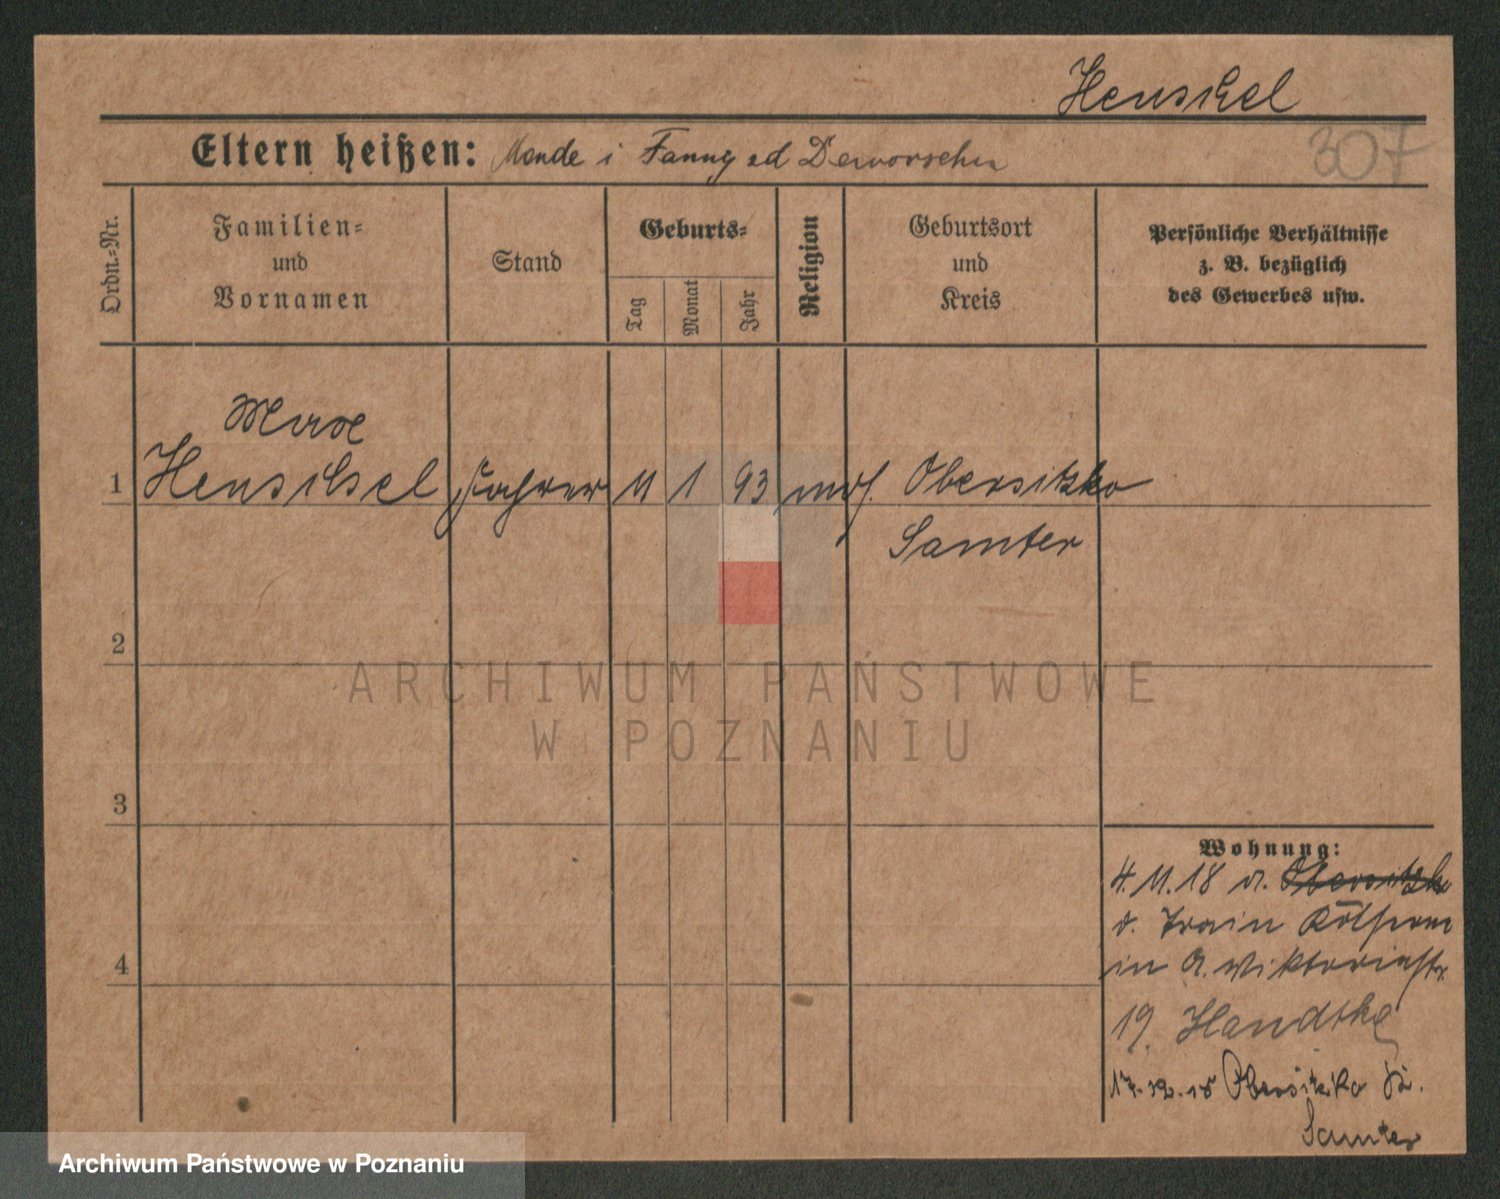 Henschel
307
Eltern heißen: Mende i Fanny zd Deworsehn
Ordn.-Nr.
Familien-
und
Vornamen
Stand
Geburts-
Tag
Monat
Jahr
Religion
Geburtsort
und
Kreis
Persönliche Verhältnisse
z. B. bezüglich
des Gewerbes usw.
Max
1 Henschel Fahrer 11 1 93 mos. Obersitzko
Samter
2
3
4
Wohnung:
4.11.18 v. Obersitzko
d. Train
in A. Viktoriastr.
19. Handtke
17.12.18 Obersitzko Kr.
Samter
ARCHIWUM PAŃSTWOWE
W POZNANIU
Archiwum Państwowe w Poznaniu